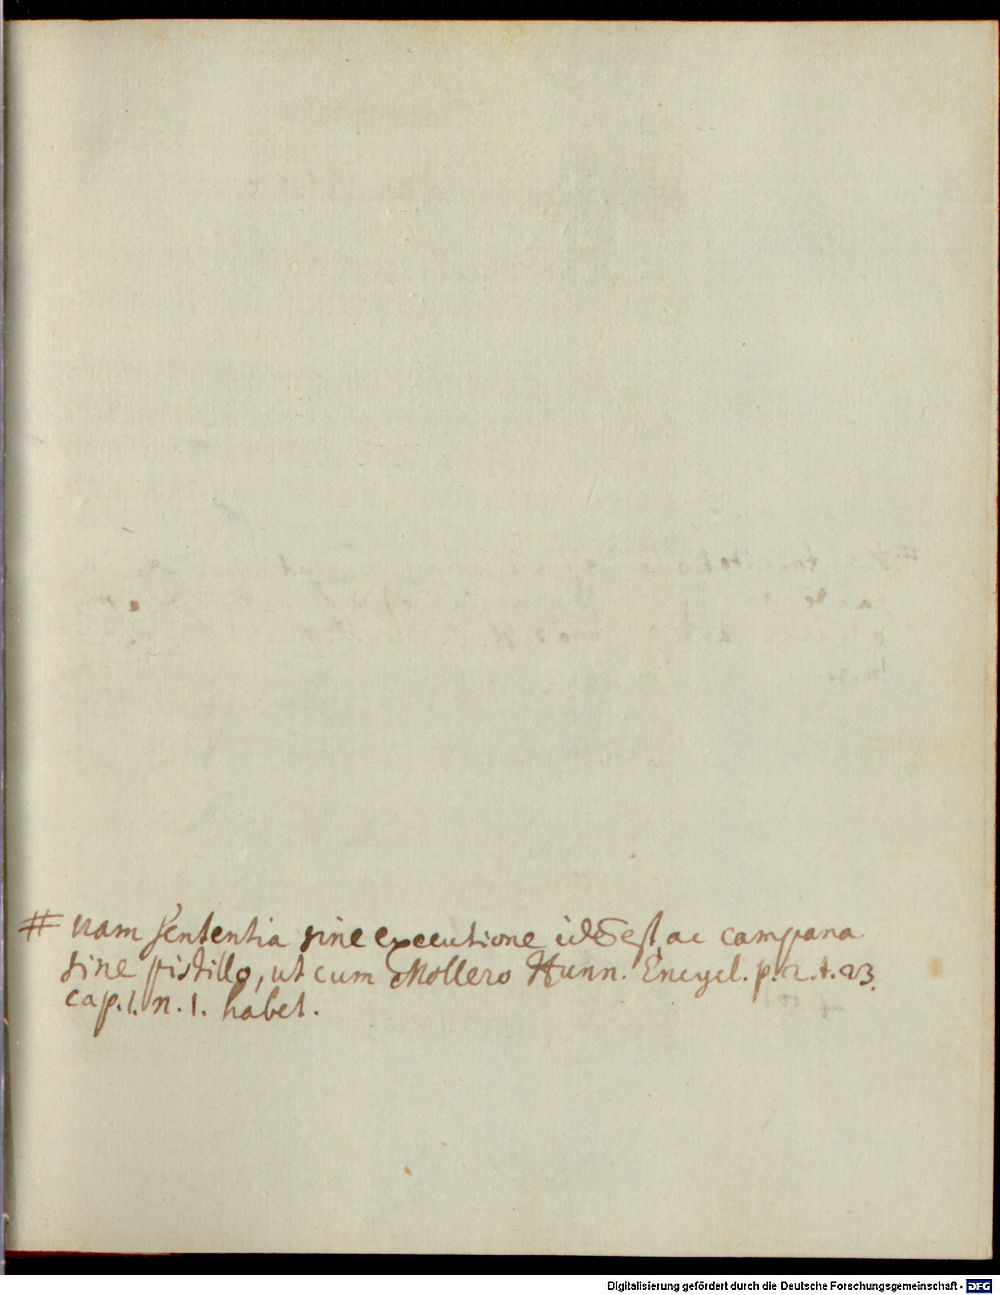 # nam sententia sine executione idē est ac campana
sine pistillo, ut cum Mollero Hunn. Encycl. p. 2. t. 23.
cap. 1. n. 1. habet.
Digitalisierung gefördert durch die Deutsche Forschungsgemeinschaft - DFG